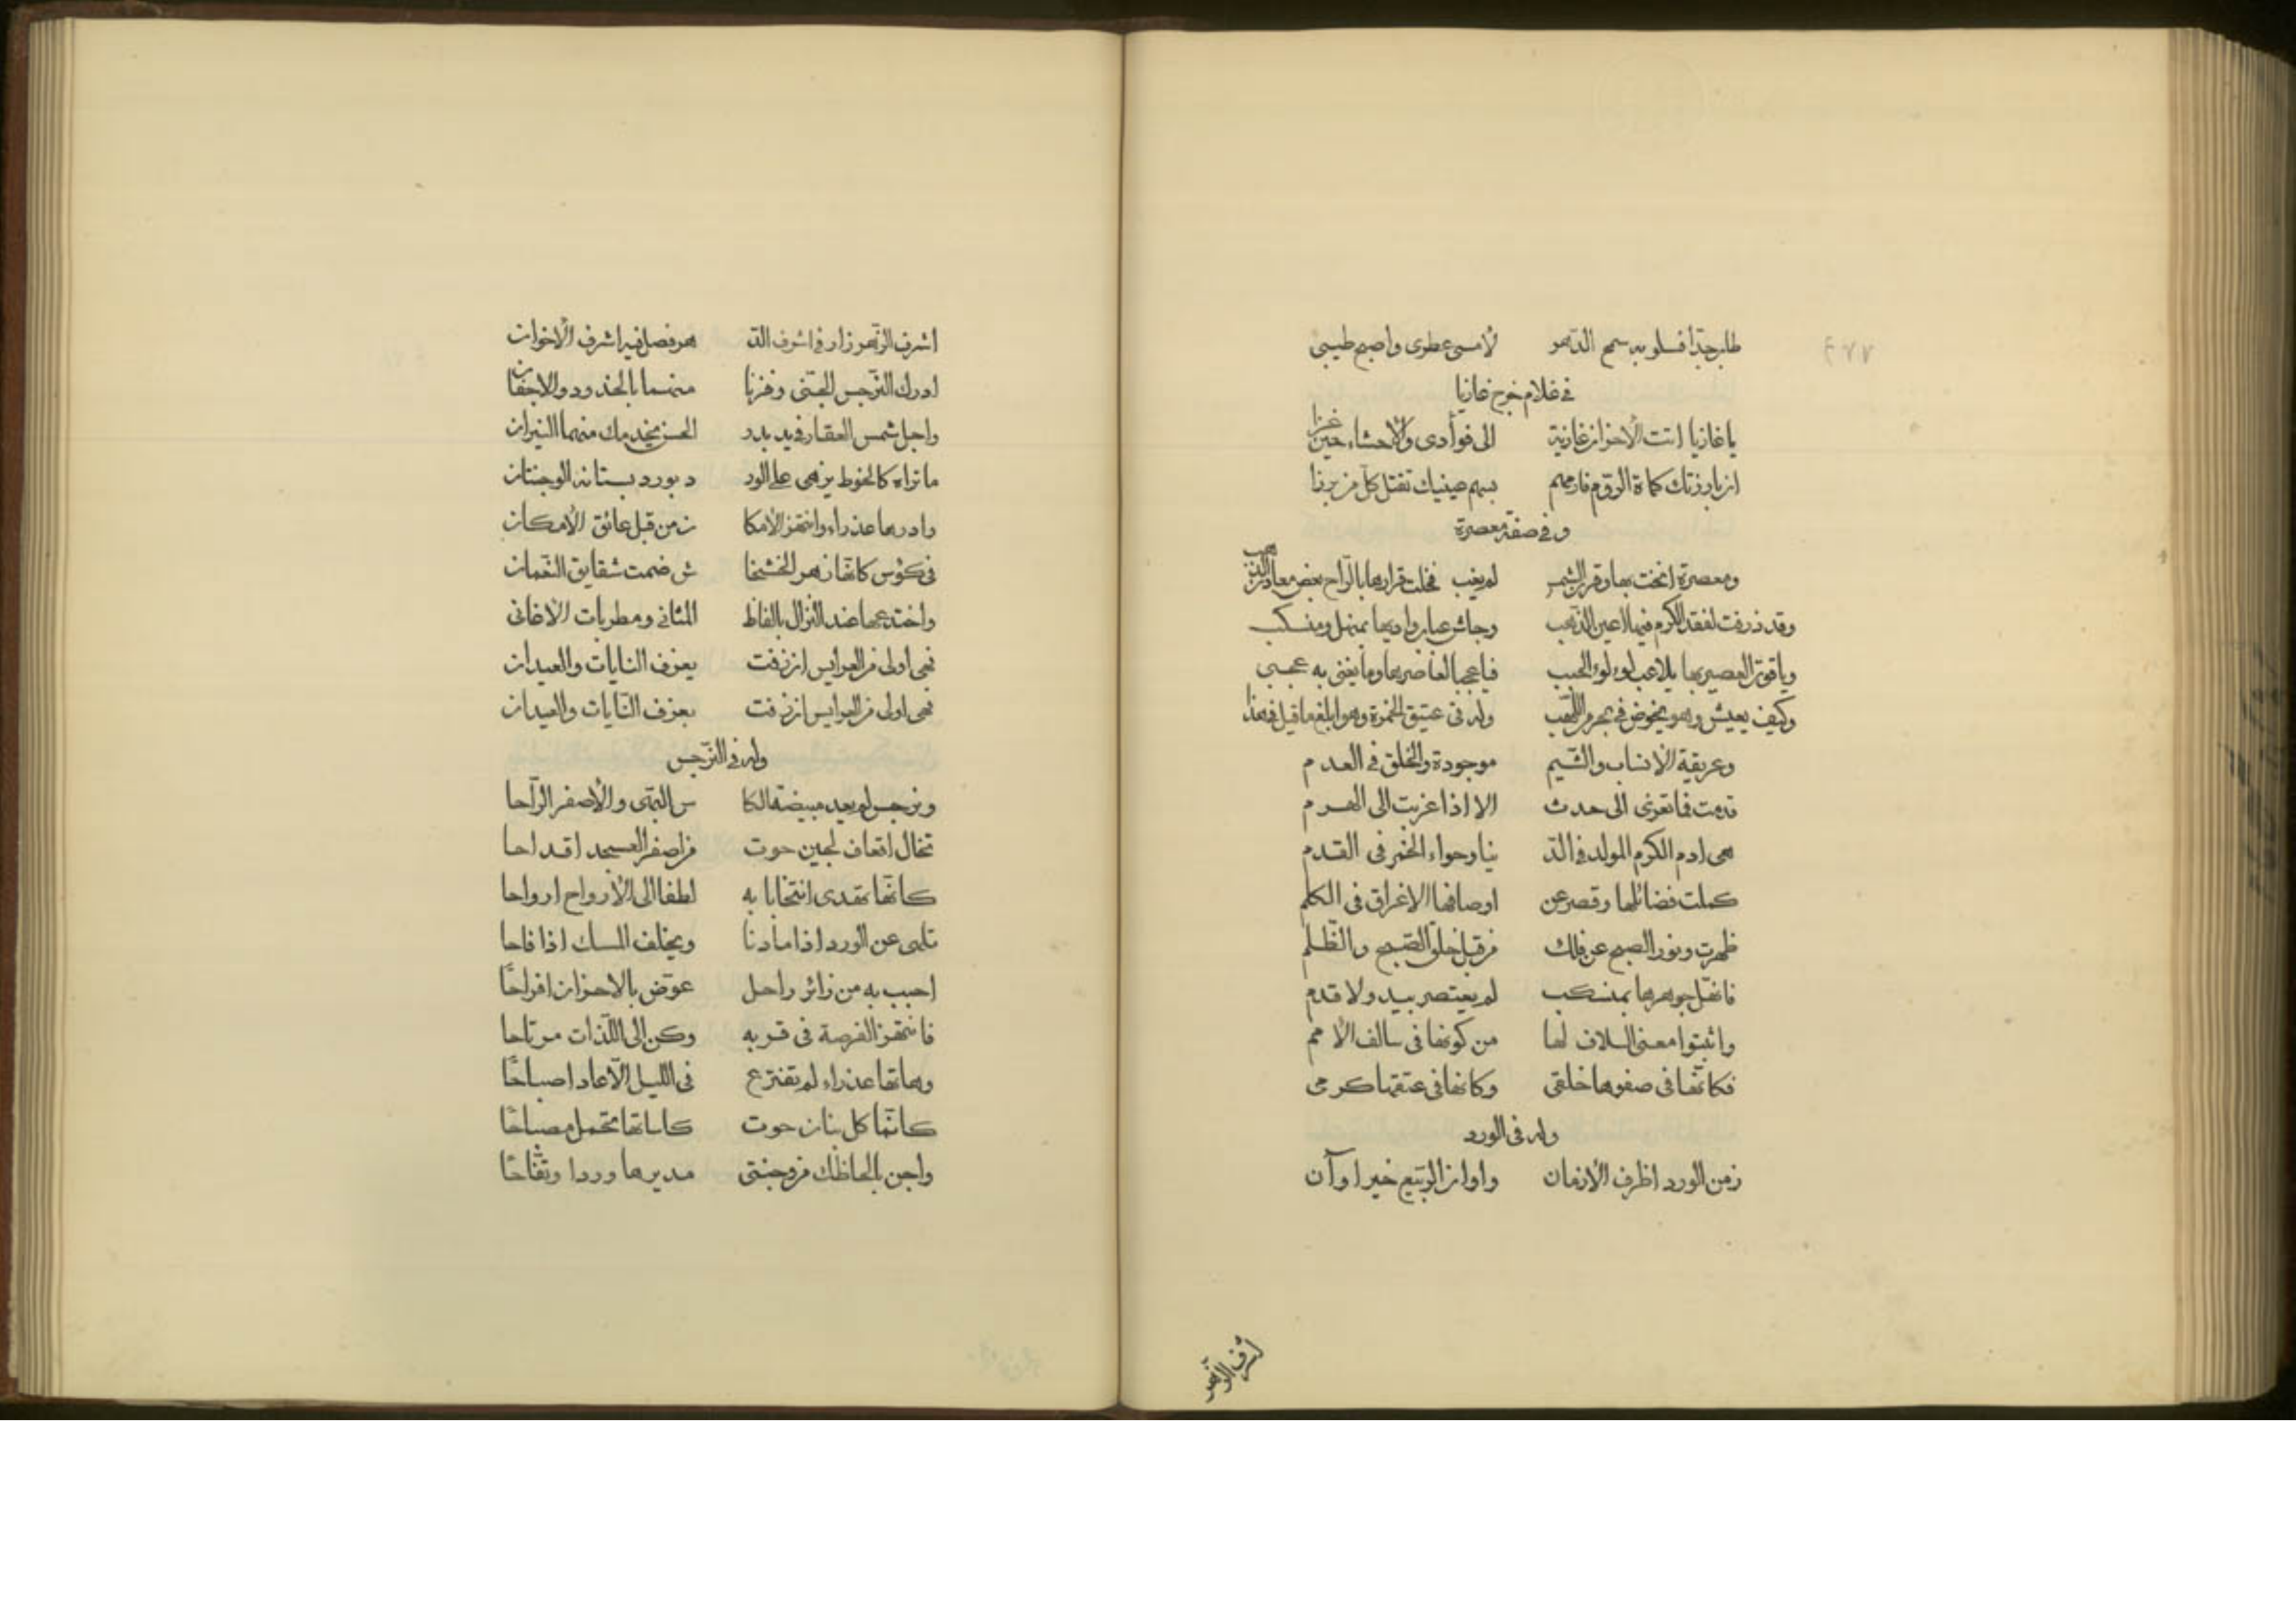 ٢٧٧
طاب جدّا فلو به سمح الدّهر لأمسى عطرى واصبح طيبى
فى غلام خرج غازيا
يا غازيا اتت الأحزان غازية الى فؤادى والأحشاء حين غزا
ان بارزتك كماة الرّوم فارمهم بسهم عينيك تقتل كلّ من برزا
وفى صفة معصرة
ومعصرة انخت بها وقرن الشمس لم يغب فخلت قرارها بالرّاح بعض معادن الذهب
وقد ذرفت لفقد الكرم فيها اعين الذهب وجاش عباب واديها بمنهل ومنسكب
وياقوت العصير بها يلاعب لؤلؤ الحبب فيا عجبا لعاصرها وما يفنى به عجبى
وكيف يعيش وهو يخوض فى بحر من اللّهب وله فى عتيق الخمرة وهو ابلغ ما قيل فى هذا
وعريقة الأنساب والشّيم موجودة والخلق فى العدم
قدمت فما تعزى الى حدث الا اذا عزيت الى الهرم
هى ادم الكرم المولد فى الدّ نيا وحواء الخمر فى القدم
كملت فضائلها وقصر عن اوصافها الاغراق فى الكلم
ظهرت ونور الصبح عن فلك من قبل خلق الصّبح والظّلم
فانهلّ جوهرها بمنسكب لم يعتصر بيد ولا قدم
واثبتوا معنى السلاف لها من كونها فى سالف الأمم
فكانّها فى صفوها خلقى وكانها فى عتقها كرمى
وله فى الورد
زمن الورد اظرف الأزمان واوان الرّبيع خير اوآن
اشرف الزّهر
اشرف الزّهر زار فى اشرف الدّ هر فصل فيه اشرف الأخوان
ادرك النّرجس الجنى وفزنا منهما بالخدود والاجفان
واجل شمس العقار فى يد بدر الحسن يخدمك منهما النيران
ما تراه كالخوط يزهى على الور د بورد بستانه الوجنتان
وادرها عذراء وانتهز الأمكا ن من قبل عائق الأمكان
فى كؤس كانّها زهر الخشخا ش ضمت شقايق النّعمان
واختدعها عند النزال بالفاظ المثانى ومطربات الأغانى
فهى اولى من العرايس ان زفت بعزف النايات والعيدان
فهى اولى من العرايس ان زفت بعزف النّايات والعيدان
وله فى النّرجس
ونرجس لم يعد مبيضه الكا س البهّى والأصفر الرّاحا
تخال اقحاف لجين حوت من اصفر العسجد اقداحا
كانّها تهدى انتخابا به لطفا الى الأرواح ارواحا
تلهى عن الورد اذا ما دنا ويخلف المسك اذا فاحا
احبب به من زائر راحل عوّض بالاحزان افراحًا
فانتهز الفرصة فى قربه وكن الى اللّذات مرتاحا
وهاتها عذراء لم تفترع فى اللّيل الّا عاد اصباحًا
كانّما كل بنان حوت كاساتها تحمل مصباحًا
واجن بالحاظك من وجنتى مديرها وردا وتفّاحًا